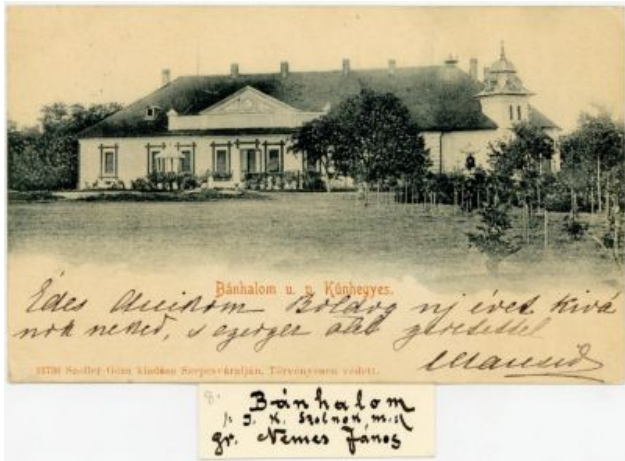 Bánhalom u. p. Kúnhegyes.
Édes Boldog uj évet kivá
nok neked, s ezerszer
23736 Szoller Géza kiadása Szepesváralján. Törvényesen védett.
8.
Bánhalom
J. N. Szolnok m.
gr. Nemes János